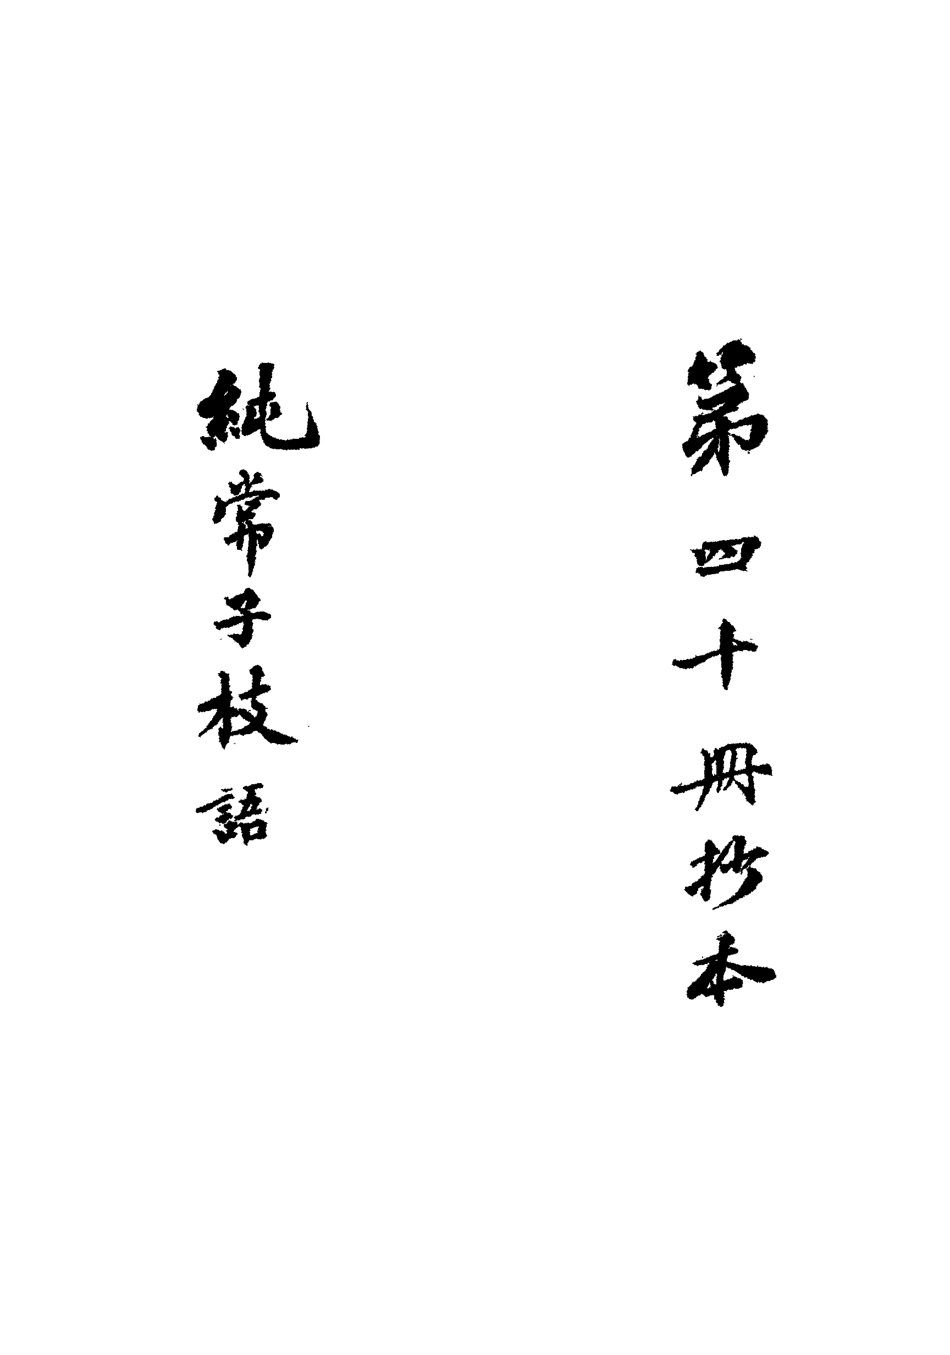 第四十冊抄本
純常子枝語